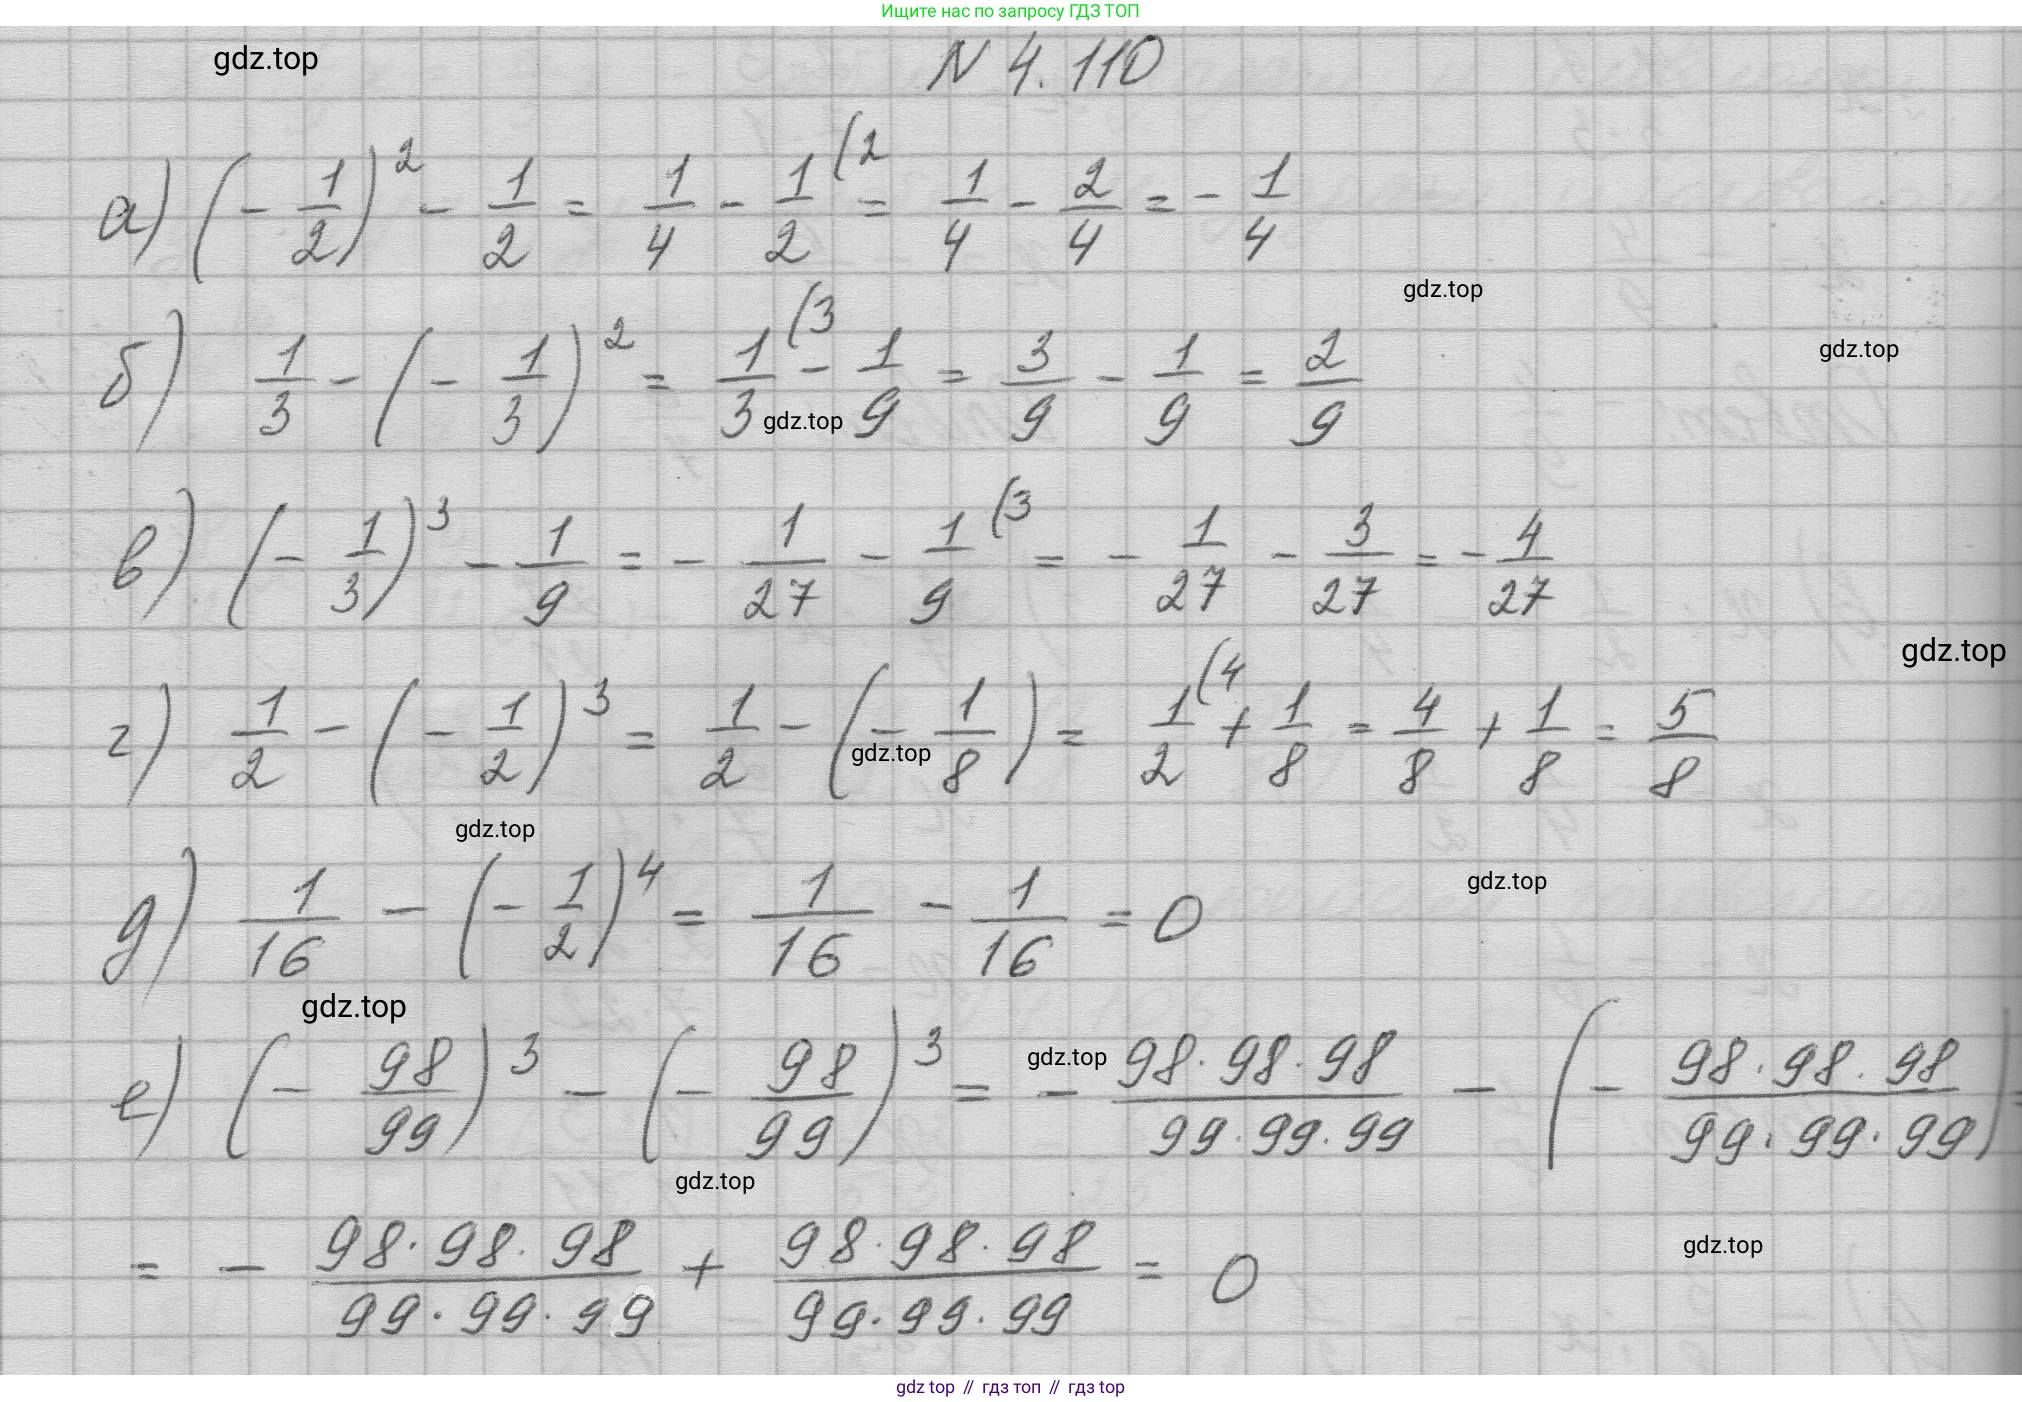 Ищите нас по запросу ГДЗ ТОП
gdz.top
N 4.110
а) (- 1/2)² - 1/2 = 1/4 - 1/2 (2 = 1/4 - 2/4 = - 1/4
gdz.top
gdz.top
б) 1/3 - (- 1/3)² = 1/3 (3 - 1/9 = 3/9 - 1/9 = 2/9
gdz.top
в) (- 1/3)³ - 1/9 = - 1/27 - 1/9 (3 = - 1/27 - 3/27 = - 4/27
gdz.top
г) 1/2 - (- 1/2)³ = 1/2 - (- 1/8) = 1/2 (4 + 1/8 = 4/8 + 1/8 = 5/8
gdz.top
gdz.top
gdz.top
д) 1/16 - (- 1/2)⁴ = 1/16 - 1/16 = 0
gdz.top
gdz.top
е) (- 98/99)³ - (- 98/99)³ = - 98·98·98/99·99·99 - (- 98·98·98/99·99·99) =
gdz.top
gdz.top
= - 98·98·98/99·99·99 + 98·98·98/99·99·99 = 0
gdz top // гдз топ // гдз top